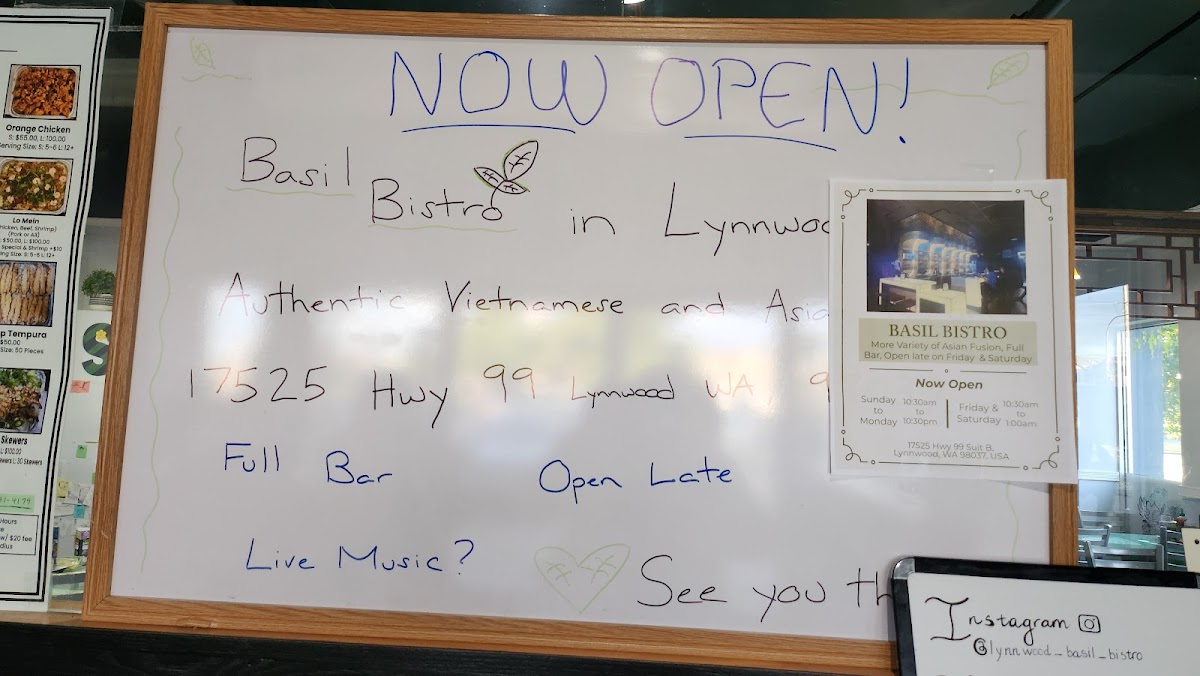 Orange Chicken
S: $55.00, L: 100.00
Serving Size: S: 5-6 L: 12+
Lo Mein
Chicken, Beef, Shrimp)
(Pork or All)
$50.00, L: $100.00
Special & Shrimp +$10
Size: S: 5-6 L: 12+
p Tempura
$50.00
Size: 50 Pieces
Skewers
L: $100.00
L: 30 Skewers
Hours
w/ $20 fee
NOW OPEN!
Basil
Bistro in Lynnwoo
Authentic Vietnamese and Asia
17525 Hwy 99 Lynnwood WA, 9
Full Bar Open Late
Live Music? See you th
BASIL BISTRO
More Variety of Asian Fusion, Full
Bar, Open late on Friday & Saturday
Now Open
Sunday to Monday 10:30am to 10:30pm
Friday & Saturday 10:30am to 1:00am
17525 Hwy 99 Suit B,
Lynnwood, WA 98037, USA
Instagram
@lynnwood_basil_bistro